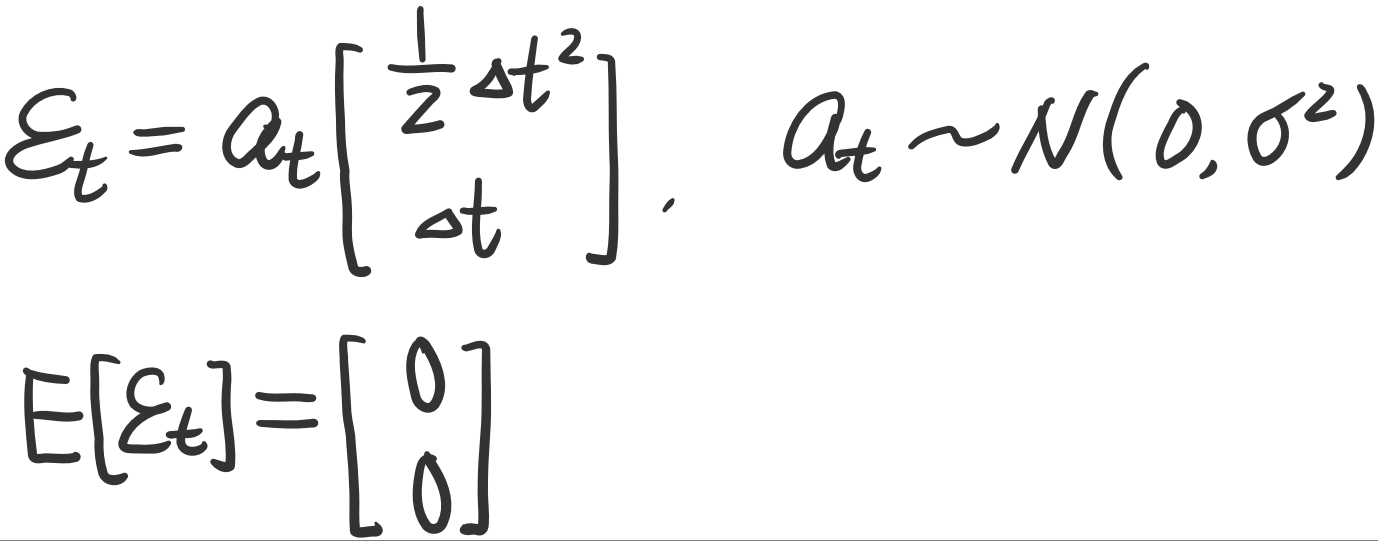 ε_t = a_t [ 1/2 Δt² ; Δt ] , a_t ~ N(0, σ²)
E[ε_t] = [ 0 ; 0 ]